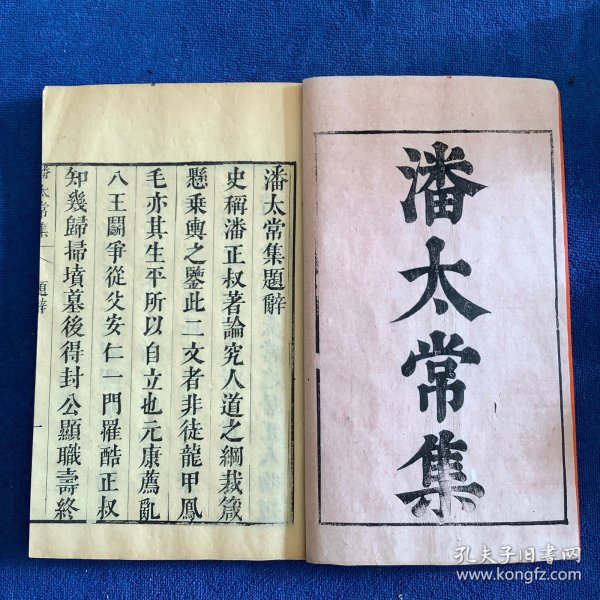 潘太常集
潘太常集題辭
史稱潘正叔著論究人道之綱裁箴
懸乘輿之鑒此二文者非徒龍甲鳳
毛亦其生平所以自立也元康薦亂
八王鬭爭從父安仁一門罹酷正叔
知幾歸掃墳墓後得封公顯職壽終
潘太常集
題辭
一
孔夫子旧书网
www.kongfz.com